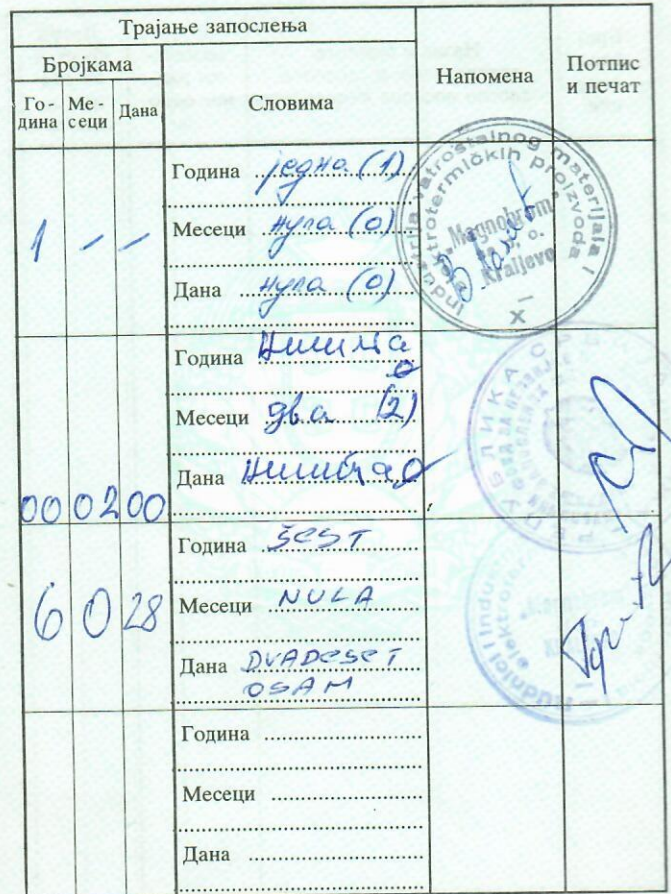 Трајање запослења
Бројкама
Словима
Напомена
Потпис
и печат
Го-
дина
Ме-
сеци
Дана
1 – –
Година једна (1)
Месеци нула (0)
Дана нула (0)
Industrija vatrostalnog materijala i
elektrotermičkih proizvoda
"Magnohrom"
Kraljevo
X
00 02 00
Година
Месеци два (2)
Дана
6 0 28
Година ŠEST
Месеци NULA
Дана DVADESET
OSAM
Година
Месеци
Дана